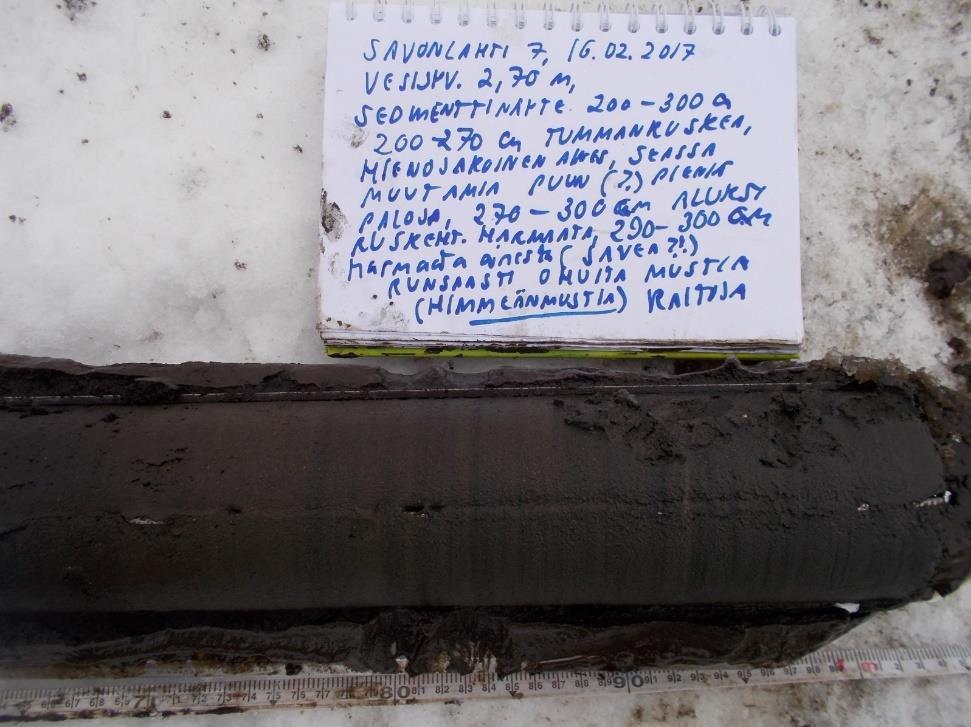 SAVONLAHTI 7, 16.02.2017
VESISYV. 2,70 m,
SEDIMENTTINÄYTE 200-300 cm
200-270 cm TUMMANRUSKEA,
HIENOJAKOINEN AINES, SEASSA
MUUTAMIA PUUN (?) PIENIÄ
PALOJA, 270-300 cm ALUKSI
RUSKEHT. HARMAATA, 290-300 cm
HARMAATA ainesta (SAVEA?!)
RUNSAASTI OHUITA MUSTIA
(HIMMEÄNMUSTIA) RAITOJA
70 80 90